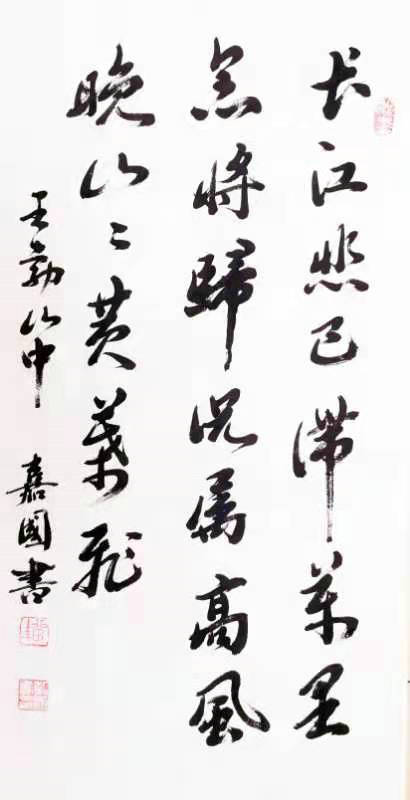 长江悲已滯萬里
念將歸况属高風
晚山々黄葉飛
王勃山中 嘉國書